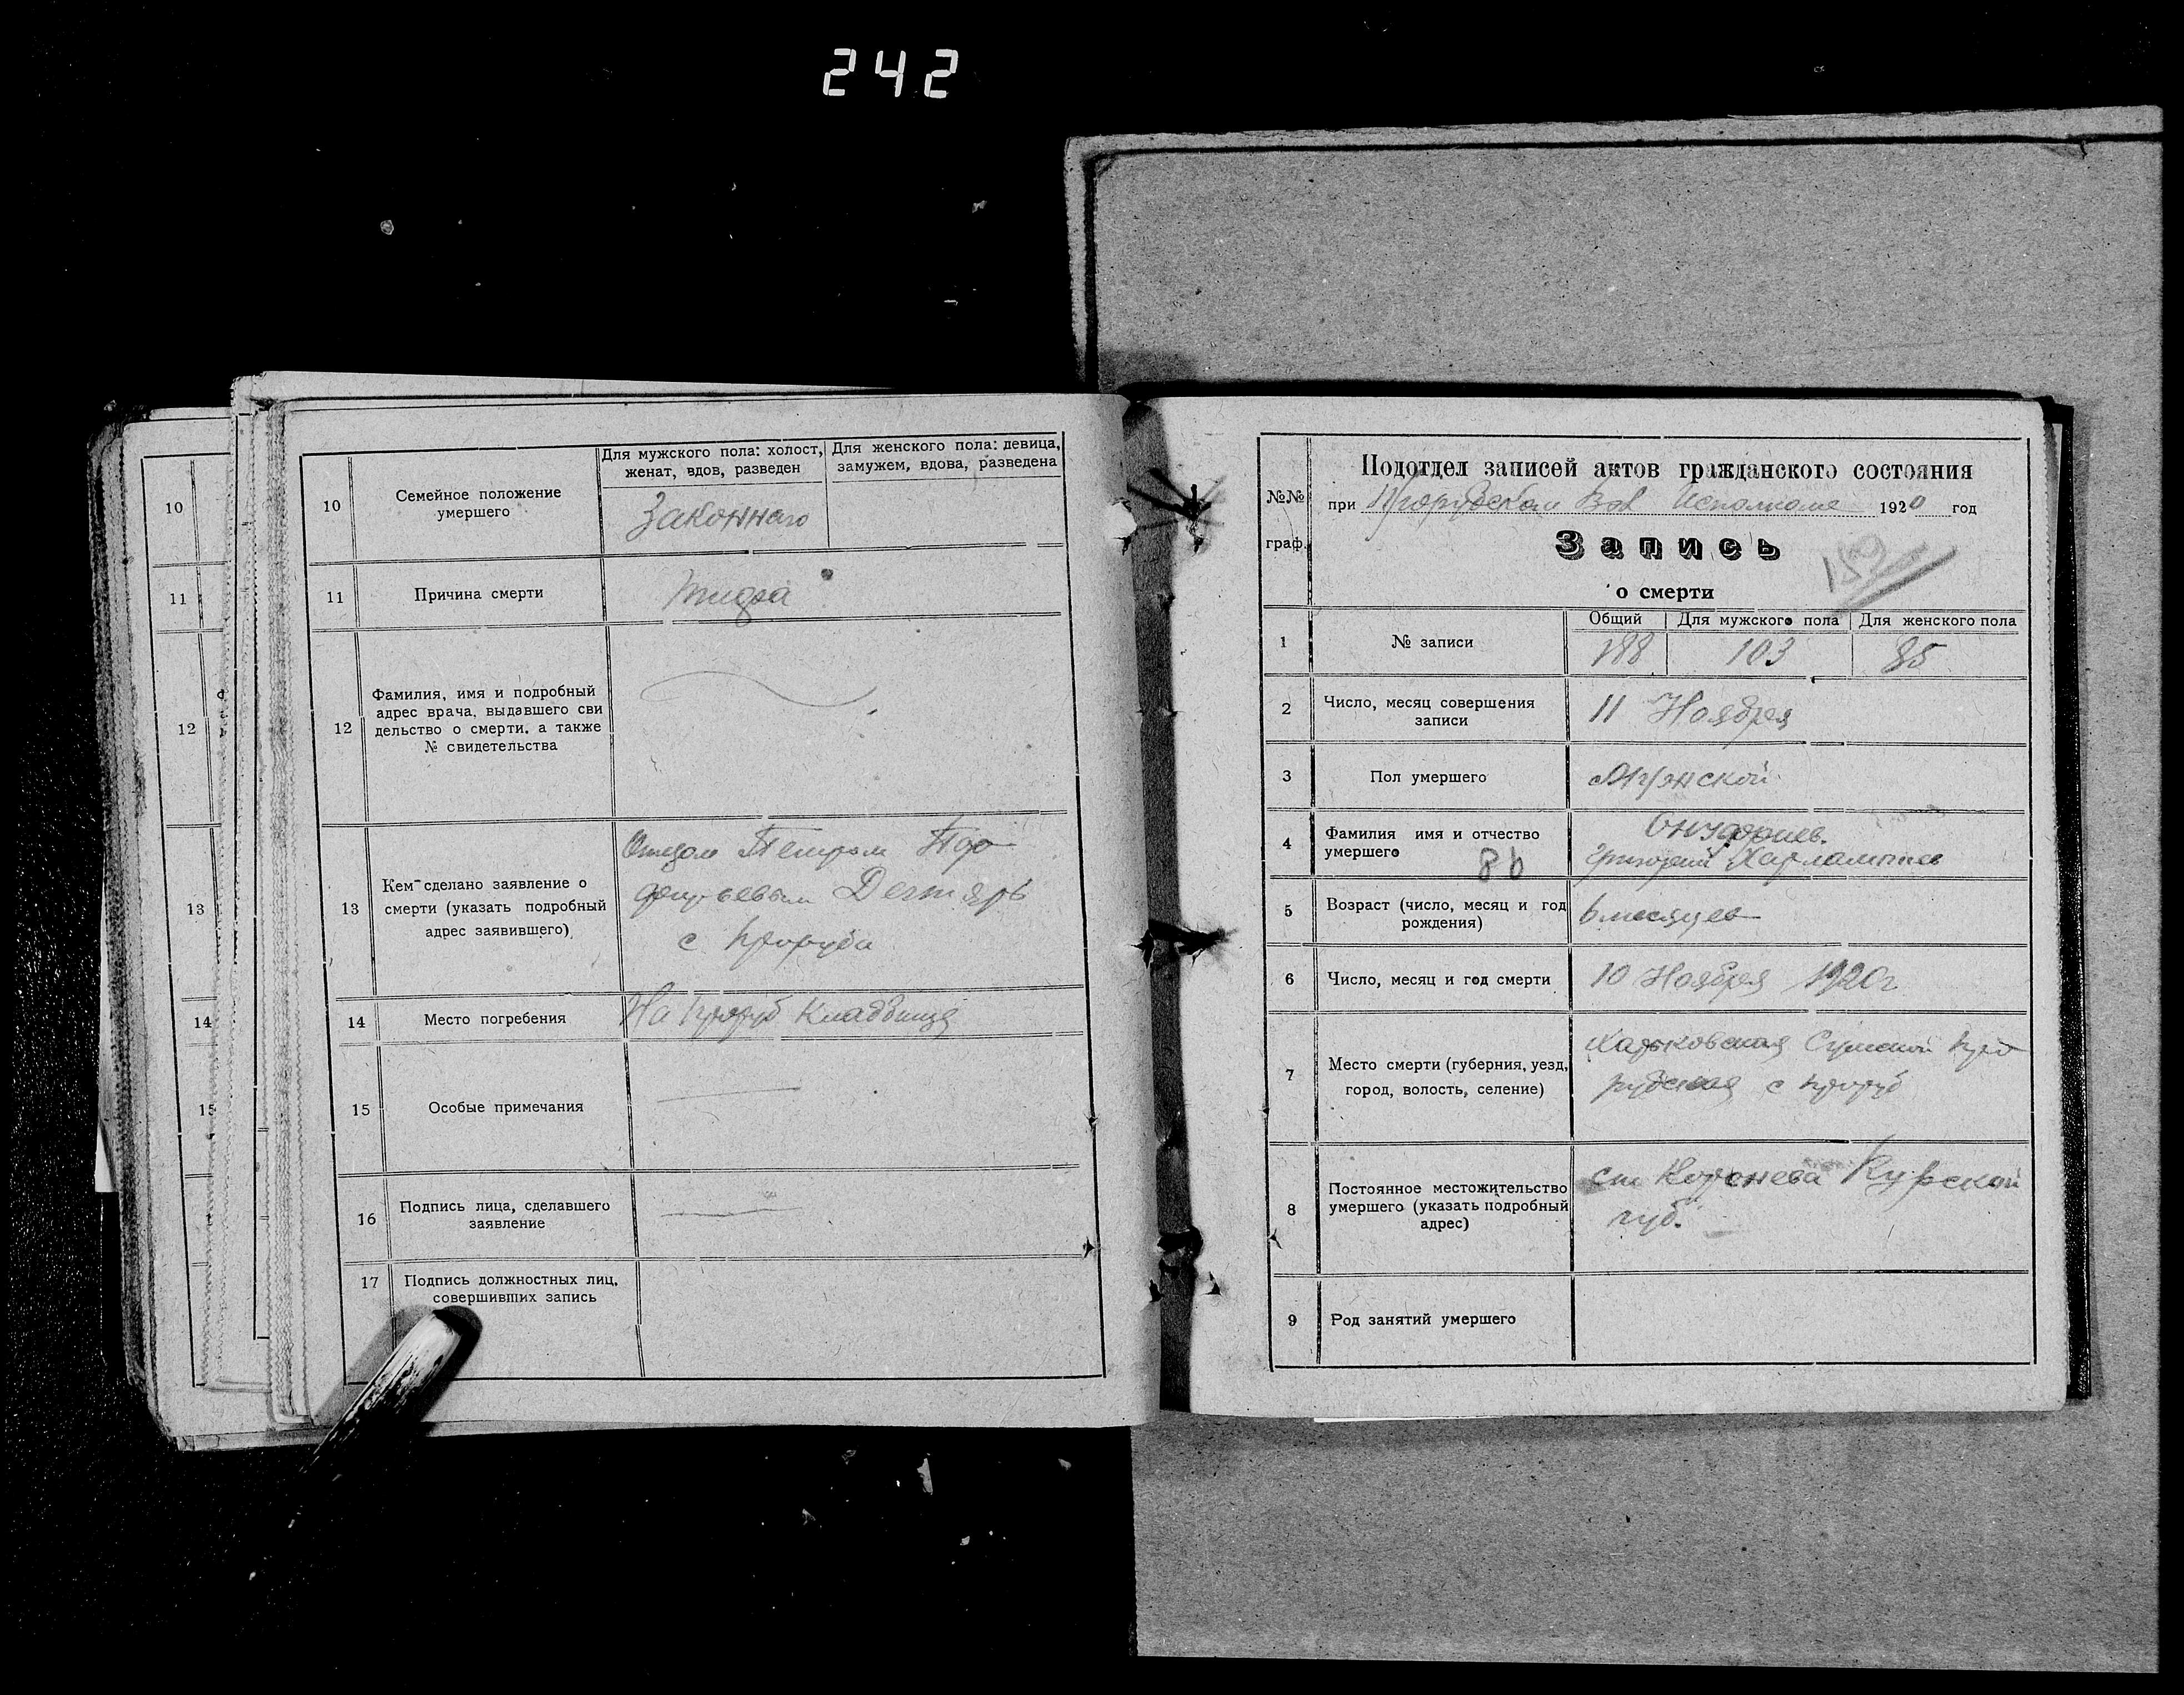 242
10
11
12
13
14
15
10
Семейное положение
умершего
Для мужского пола: холост,
женат, вдов, разведен
Для женского пола: девица,
замужем, вдова, разведена
Законнаго
11
Причина смерти
12
Фамилия, имя и подробный
адрес врача, выдавшего сви
дельство о смерти, а также
№ свидетельства
13
Кем сделано заявление о
смерти (указать подробный
адрес заявившего)
Отцом Петром
Дегтярь
с
14
Место погребения
На Кладбище
15
Особые примечания
16
Подпись лица, сделавшего
заявление
17
Подпись должностных лиц,
совершивших запись
№№
граф.
Подотдел записей актов гражданского состояния
при Исполкоме 1920 год
Запись
152
о смерти
1
№ записи
Общий
Для мужского пола
Для женского пола
188
103
85
2
Число, месяц совершения
записи
11 Ноября
3
Пол умершего
Мужской
4
Фамилия имя и отчество
умершего
Онуфриев.
Григорий Харлампиев
5
Возраст (число, месяц и год
рождения)
6 месяцев
6
Число, месяц и год смерти
10 Ноября 1920 г
7
Место смерти (губерния, уезд,
город, волость, селение)
Харьковская Сумской
с
8
Постоянное местожительство
умершего (указать подробный
адрес)
ст Коренева Курской
губ.
9
Род занятий умершего